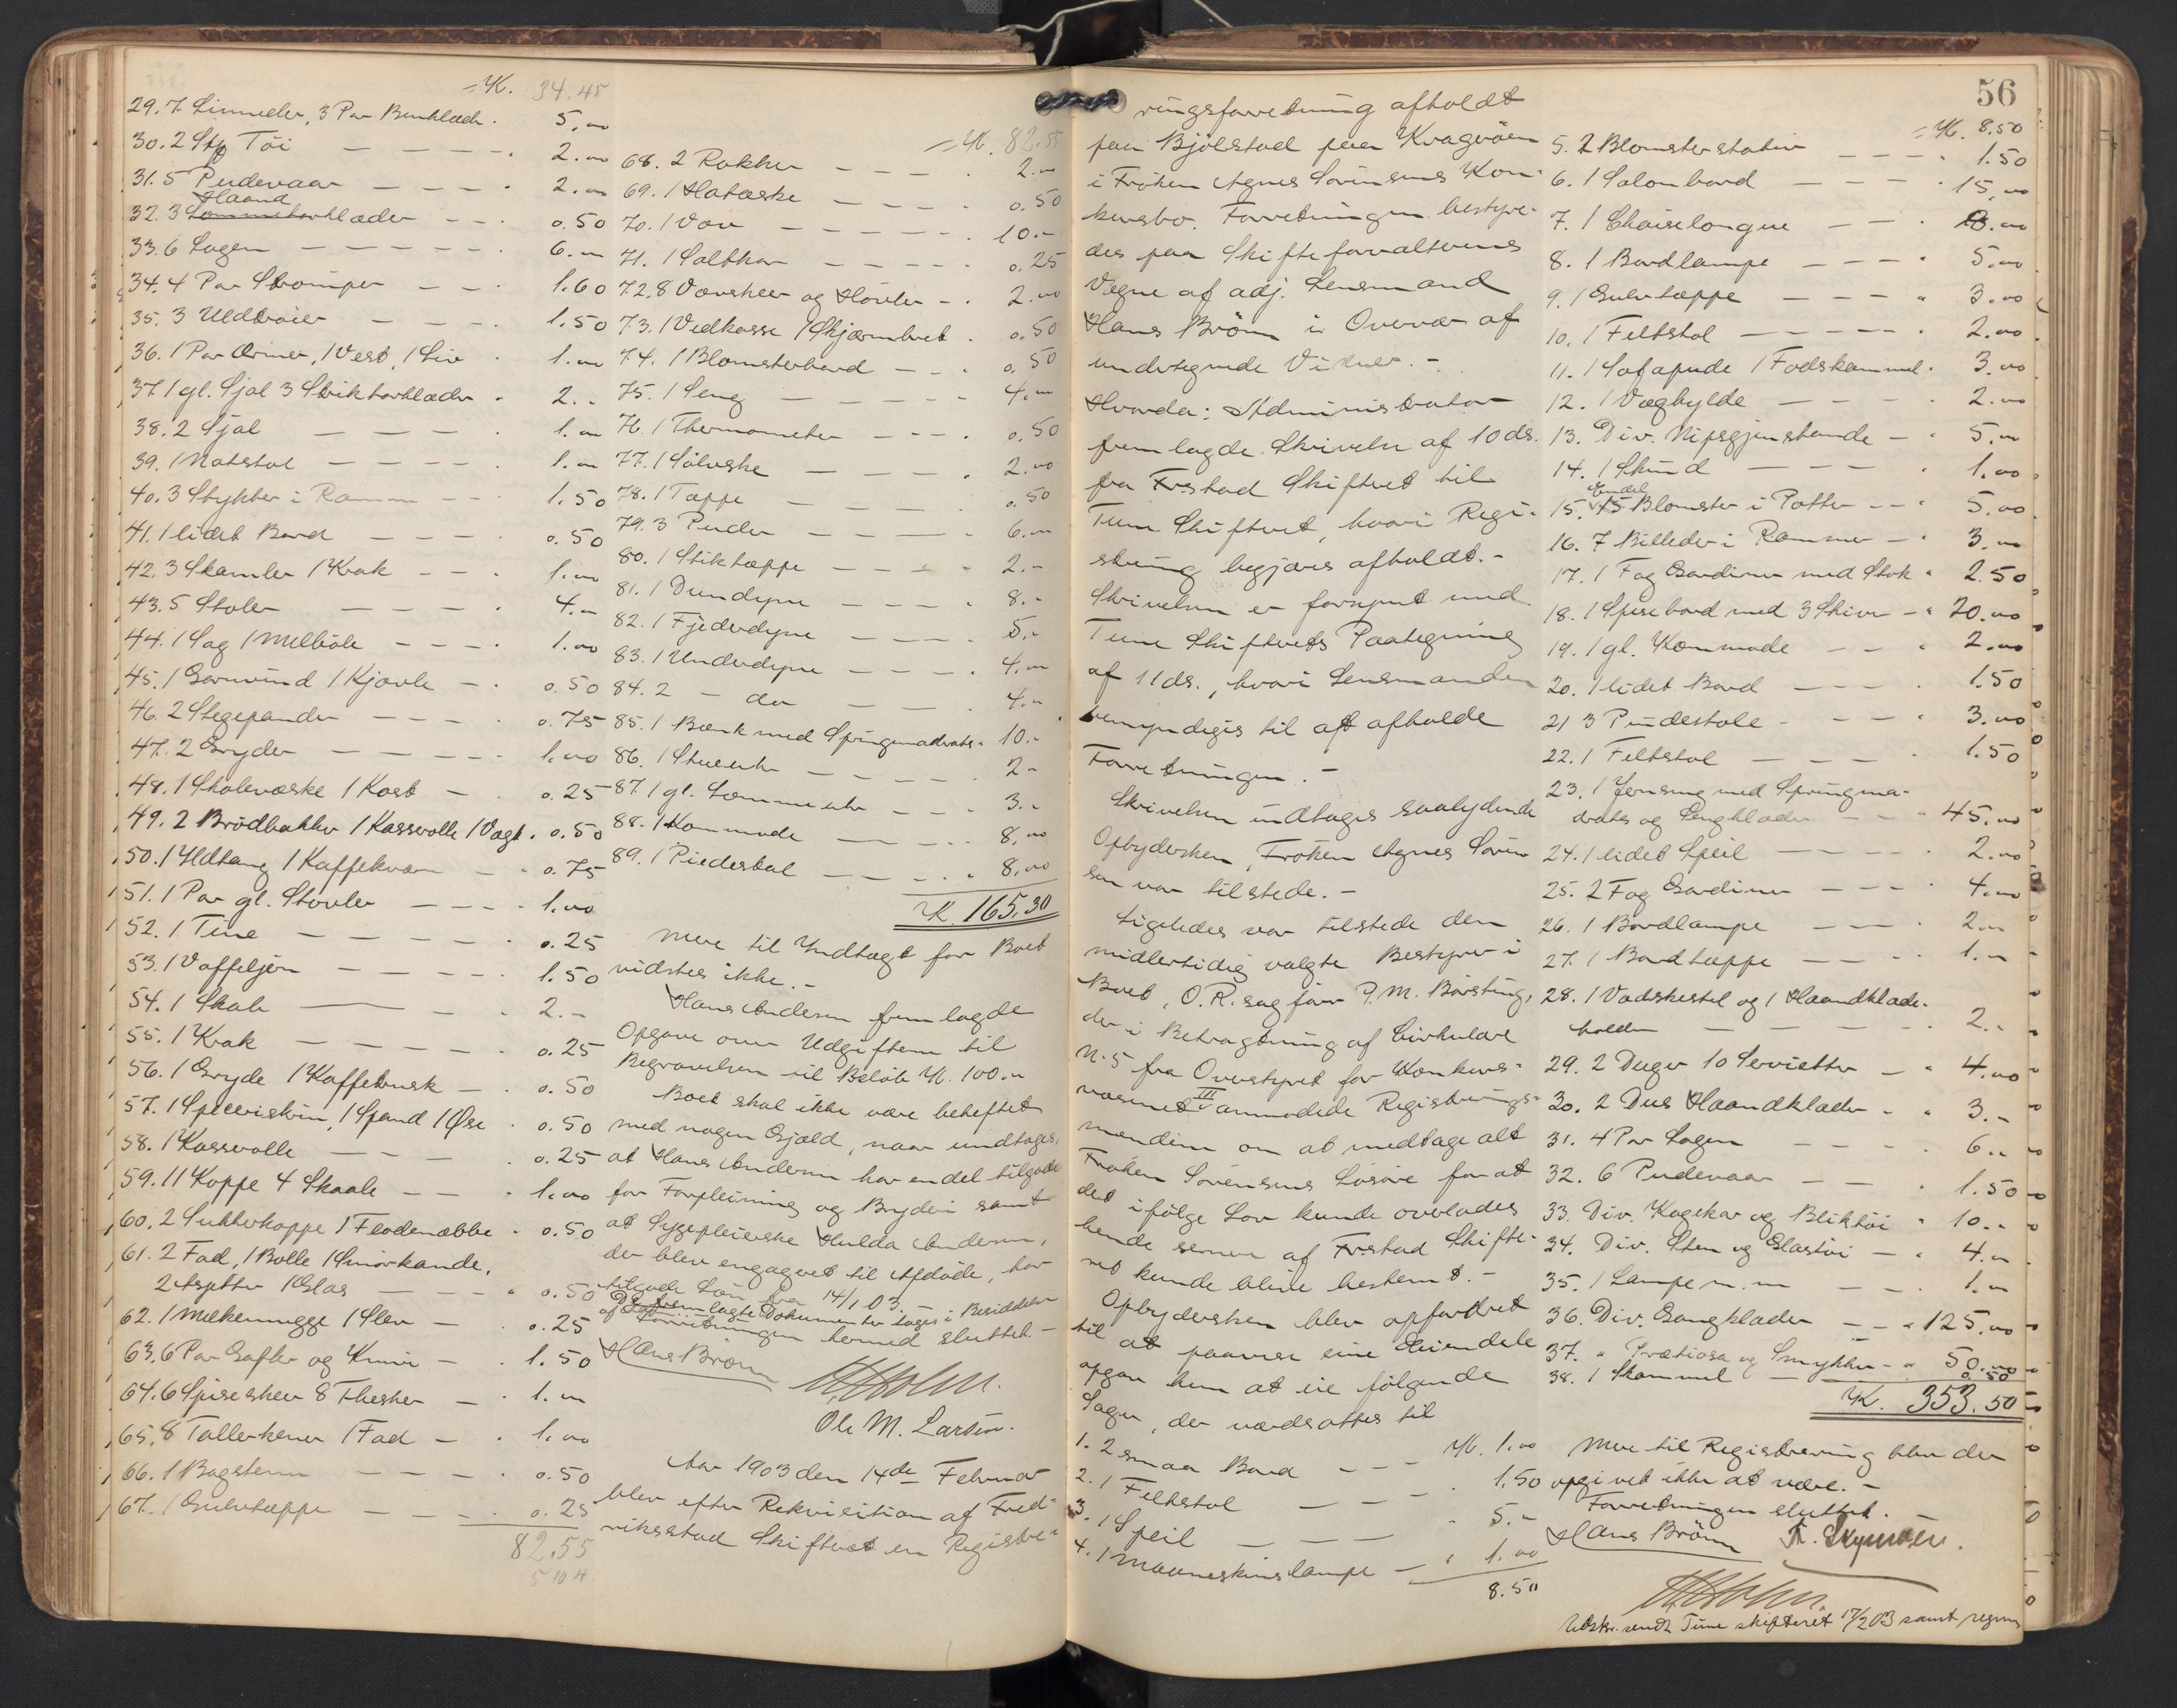 = K. 34.45
29. 7 Linneder, 3 Par Benklæder. 5.00
30. 2 Stk Töi — — — — 2.00
31. 5 Pudevaar — — — 2.00
Haand
32. 3 Lommetørklæder — — 0.50
33. 6 Lagen — — — — — 6.00
34. 4 Par Strömper — — 1.60
35. 3 Uldtröier — — — 1.50
36. 1 Par Ærmer, 1 Vest, 1 Liv 1.00
37. 1 gl. Sjal 3 Striktørklæder 2..
38. 2 Sjal — — — — 1.00
39. 1 Natstol — — — — 1.00
40. 3 Stykker i Ramme — — 1.50
41. 1 lidet Bord — — — 0.50
42. 3 Skamler 1 Krak — — 1.00
43. 5 Stoler — — — — 4.-
44. 1 Sag 1 Melbøle — — — 1.00
45. 1 Garnvind 1 Kjævle — 0.50
46. 2 Stegepander — — — 0.75
47. 2 Gryder — — — — 1.00
48. 1 Skolevæske 1 Kost — 0.25
49. 2 Brödbakker 1 Kasserolle 1 Vægt. 0.50
50. 1 Ildtang 1 Kaffekværn — 0.75
51. 1 Par gl. Stövler — — — 1.00
52. 1 Tine — — — — 0.25
53. 1 Vaffeljern — — — — 1.50
54. 1 Skab — — — 2.-
55. 1 Krak — — — — 0.25
56. 1 Gryde 1 Kaffebrænder — 0.50
57. 1 Spilleskrin, 1 Spand 1 Öse 0.50
58. 1 Kasserolle — — — 0.25
59. 11 Koppe 4 Skaale — — 1.00
60. 2 Sukkerkoppe 1 Flødenæbbe 0.50
61. 2 Fad, 1 Bolle 1 Smörkande,
2 Asjetter 1 Glas — — — 0.50
62. 1 Melkemugge 1 Slev — 0.25
63. 6 Par Gafler og Knive — 1.50
64. 6 Spiseskeer 8 Flasker — 1.00
65. 8 Tallerkener 1 Fad — 1.00
66. 1 Bagstenn — — — 0.50
67. 1 Gulvtæppe — — — 0.25
82.55
= K. 82.55
68. 2 Rokker — — — 2.00
69. 1 Hataske — — — 0.50
70. 1 Væv — — — — 10.-
71. 1 Saltkar — — — — 0.25
72. 8 Vævskeer og Hövler — 2.00
73. 1 Vedkasse 1 Skjærmbret 0.50
74. 1 Blomsterbord — — 0.50
75. 1 Seng — — — — 4.00
76. 1 Thermometer — — — 0.50
77. 1 Sölvske — — — 2.00
78. 1 Tæppe — — — 0.50
79. 3 Puder — — — — 6.00
80. 1 Stiktæppe — — — 2.-
81. 1 Dundyne — — — 8.-
82. 1 Fjederdyne — — — 5.-
83. 1 Underdyne — — — 4.00
84. 2 — do — — 4.-
85. 1 Bænk med Springmadrats 10.-
86. 1 Stueuhr — — — — 2-
87. 1 gl. Lommeuhr — — 3.-
88. 1 Kommode — — — 8.00
89. 1 Piedestal — — — 8.00
K. 165.30
Mere til Indtægt for Boet
vidstes ikke.-
Hans Andersen fremlagde
Opgave over Udgifterne til
Begravelsen til Beløb K. 100.00
Boet skal ikke være beheftet
med nogen Gjæld, naar undtages,
at Hans Andersen har endel tilgode
for Forpleining og Bryderi samt
at Sygepleierske Hulda Andersen,
der blev engageret til Afdøde, har
tilgode Løn fra 14/1 03.
De fremlagte Dokumenter tages i Besiddelse
af
Forretningen hermed sluttet.-
Hans Bröm H Holm.
Ole M. Larsen.
Aar 1903 den 14de Februar
blev efter Rekvisition af Fred-
riksstad Skifteret en Registre-
56
ringsforretning afholdt
paa Bjölstad paa Kragröen
i Fröken Agnes Sörensens Kon-
kursbo. Forretningen bestyre-
des paa Skifteforvalterens
Vegne af adj. Lensmand
Hans Bröm i Overvær af
undertegnede Vidner.-
Hvorda: Administrator
fremlagde Skrivelse af 10 ds.
fra Fr.stad Skifteret til
Tune Skifteret, hvori Regi-
strering begjæres afholdt.-
Skrivelsen er forsynet med
Tune Skifterets Paategning
af 11 ds., hvori Lensmanden
bemyndiges til at afholde
Forretningen.-
Skrivelsen indtages saalydende
Opbydersken, Fröken Agnes Sören-
sen var tilstede.-
Ligeledes var tilstede den
midlertidig valgte Bestyrer i
Boet, O.R.sagförer P. M. Börsting,
der i Betragtning af Cirkulære
N. 5 fra Overstyret for Konkurs-
væsenet III anmodede Registrerings-
mændene om at medtage alt
Fröken Sörensens Lösöre for at
det ifölge Lov kunde overlades
hende senere af Fr.stad Skifte-
ret kunde blive bestemt.-
Opbydersken blev opfordret
til at paavise sine Eiendele
opgav hun at eie fölgende
Sager, der værdsattes til
1. 2 smaa Bord — — — K. 1.00
2. 1 Feltstol — — — 1.50
3. 1 Speil — — — 5.-
4. 1 Maaneskinslampe — 1.00
8.50
= K. 8.50
5. 2 Blomsterstativ — — — 1.50
6. 1 Salonbord — — — 15.00
7. 1 Chaiselongue — —
8. 1 Bordlampe — — — 5.00
9. 1 Gulvtæppe — — — 3.00
10. 1 Feltstol — — — — 2.00
11. 1 Sofapude 1 Fodskammel 3.00
12. 1 Væghylde — — — 2.00
13. Div. Nipsgjenstande — 5.00
14. 1 Skind — — — 1.00
Endel
15. 15 Blomster i Potter — — 5.00
16. 7 Billeder i Rammer — 3.00
17. 1 Fag Gardiner med Stok 2.50
18. 1 Spisebord med 3 Skiver — 20.00
19. 1 gl. Kommode — — 2.00
20. 1 lidet Bord — — — 1.50
21 3 Pindestole — — — 3.00
22. 1 Feltstol — — — 1.50
23. 1 Jernseng med Springma-
drats og Sengklæder — — 45.00
24. 1 lidet Speil — — — 2.00
25. 2 Fag Gardiner — — — 4.00
26. 1 Bordlampe — — — 2.00
27. 1 Bordtæppe — — — 1.00
28. 1 Vadskestel og 1 Haandklæde-
holder — — — — 2.-
29. 2 Duger 10 Servietter — 4.00
30. 2 Dus Haandklæder — 3.-
31. 4 Par Lagen — — — 6..
32. 6 Pudevaar — — 1.50
33. Div. Kagekar og Bliktöi 10..
34. Div. Sten og Glastöi — 4.00
35. 1 Lampe m.m — — 1.00
36. Div. Gangklæder — — 125.00
37. " Prætiosa og Smykker — 50.00
38. 1 Skammel — 0.50
K. 353.50
Mere til Registrering blev der
opgivet ikke at være.-
Forretningen sluttet.
Hans Bröm
H Holm.
Udskr. sendt Tune skifteret 17/2 03 samt regning